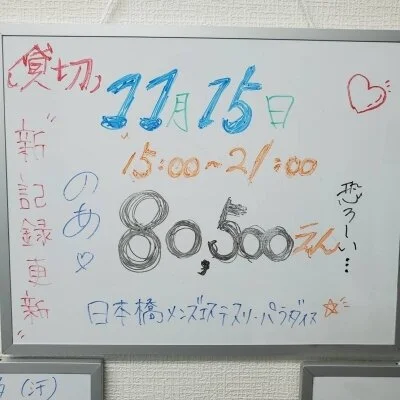 貸切
11月15日
15:00~21:00
"新記録更新"
のあ♡
80,500えん
恐ろしい…
日本橋メンズエステスリーパラダイス☆
(汗)